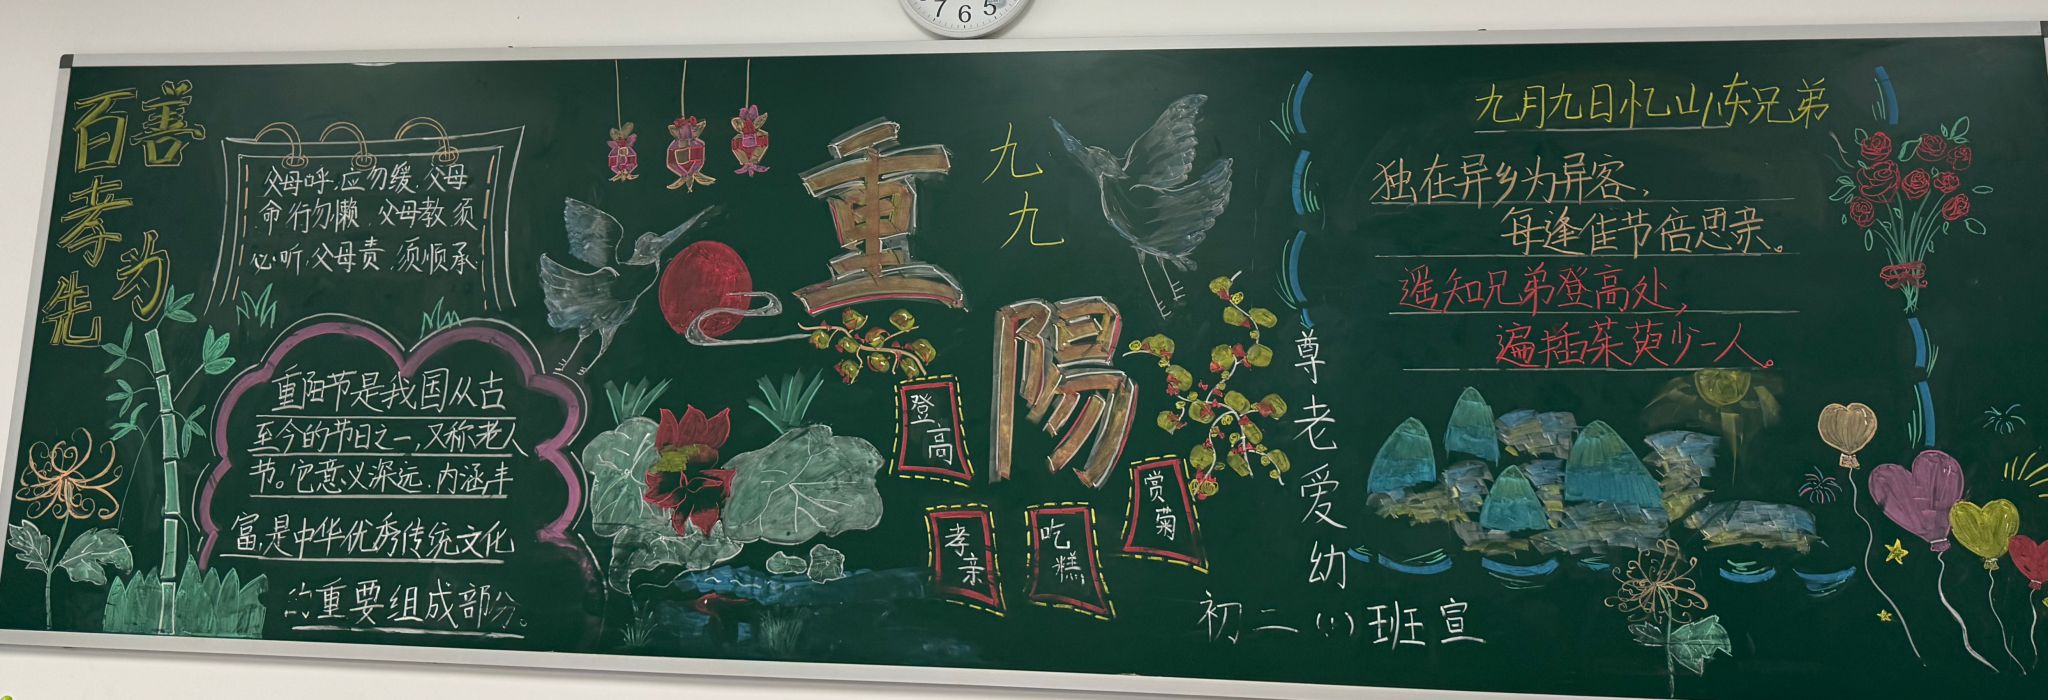 7 6 5
百善
孝为
先
父母呼,应勿缓,父母
命,行勿懒,父母教,须
必听,父母责,须顺承
重阳节是我国从古
至今的节日之一,又称老人
节。它意义深远,内涵丰
富,是中华优秀传统文化
的重要组成部分。
重
陽
九
九
登高
孝亲
吃糕
赏菊
尊老爱幼
初二(1)班宣
九月九日忆山东兄弟
独在异乡为异客,
每逢佳节倍思亲。
遥知兄弟登高处,
遍插茱萸少一人。